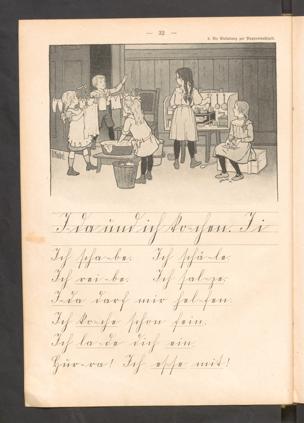 — 32 —
6. Die Einladung zur Puppenmahlzeit.
I-da und ich ko-chen. Ii
Ich scha-be. Ich schä-le.
Ich rei-be. Ich sal-ze.
I-da darf mir hel-fen.
Ich ko-che schon fein.
Ich la-de dich ein.
Hur-ra! Ich esse mit!